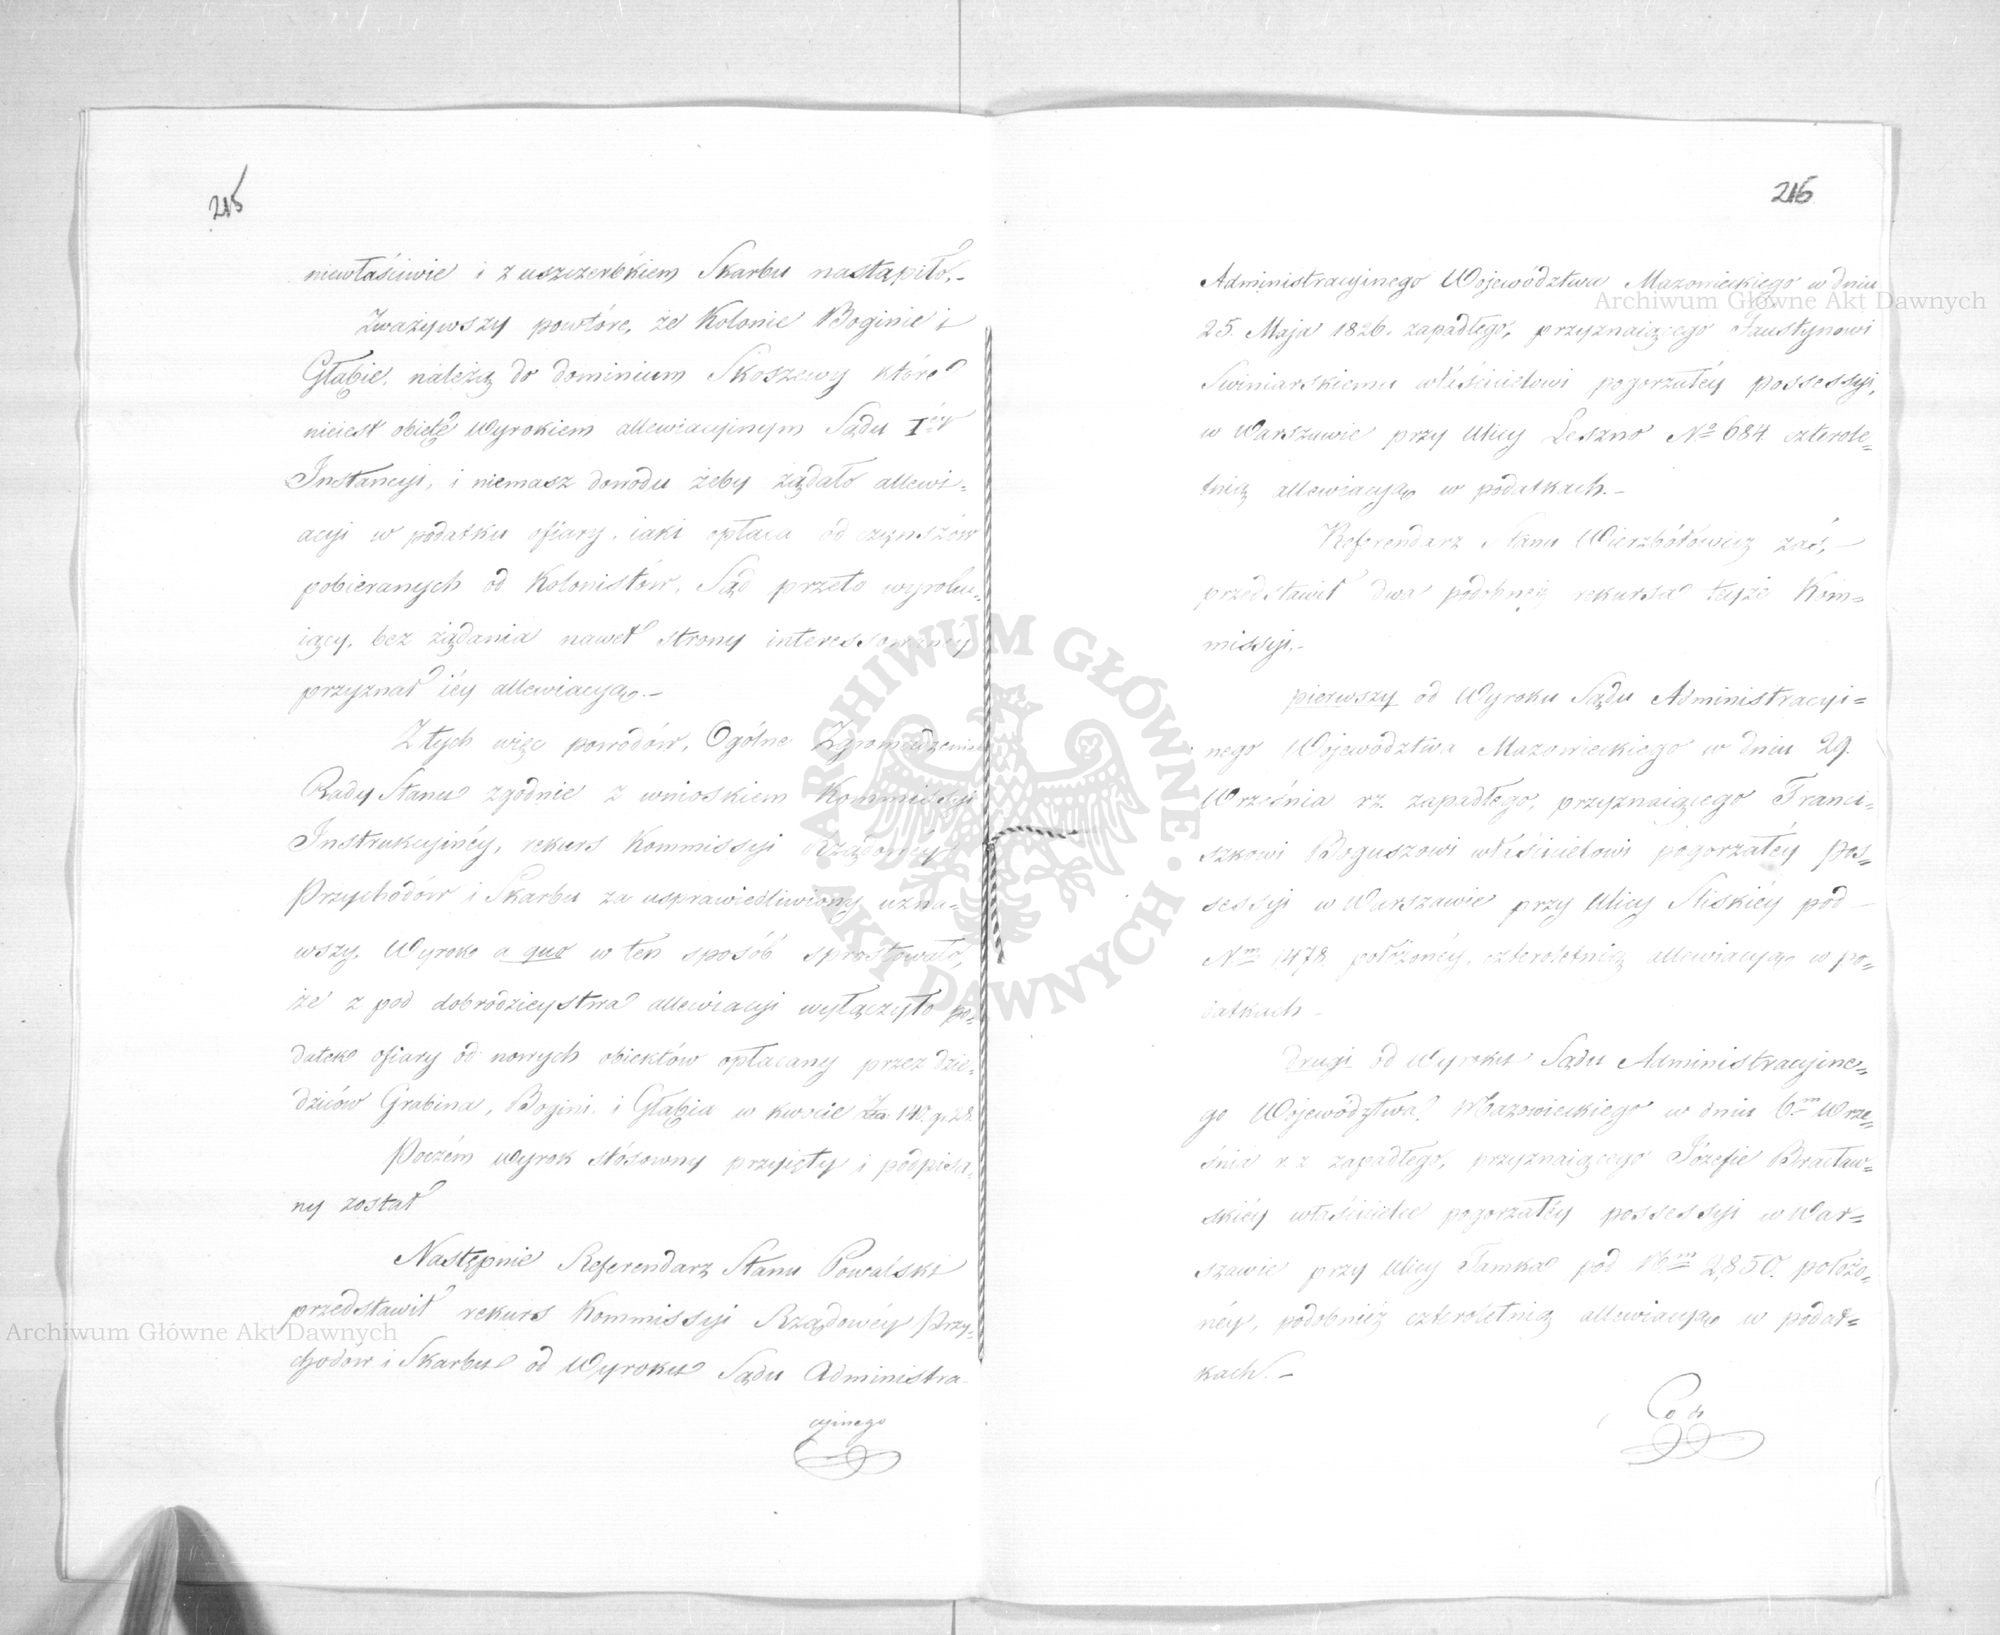 215
niewłaściwie i z uszczerbkiem Skarbu nastąpiło.-
Zważywszy powtóre, że Kolonie Boginie i
Głąbie, należą do dominium Skoszewy które
nieiest obięte Wyrokiem allewiacyjnym Sądu Iéy
Instancyi, i niemasz dowodu żeby żądało allewi=
acyi w podatku ofiary, iaki opłaca od czynszów
pobieranych od Kolonistów, Sąd przeto wyroku=
iący, bez żądania nawet strony interessowanéy
przyznał iéy allewiacyją.-
Z tych więc powodów, Ogólne Zgromadzenie
Rady Stanu zgodnie z wnioskiem Kommissyi
Instrukcyinéy, rekurs Kommissyi Rządowéy
Przychodów i Skarbu za usprawiedliwiony uzna=
wszy, Wyrok a quo w ten sposób sprostowało,
że z pod dobrodzieystwa allewiacyi wyłączyło po=
datek ofiary od nowych obiektów opłacany przez dzie=
dziców Grabina, Bogini, i Głąbia w kwocie Złp. 140. gr. 28.
Poczém wyrok stósowny przyięty i podpisa=
ny został
Następnie Referendarz Stanu Powalski
przedstawił rekurs Kommissyi Rządowéy Przy=
chodów i Skarbu od Wyroku Sądu Administra=
cyinego
216
Administracyinego Województwa Mazowieckiego w dniu
25. Maja 1826. zapadłego, przyznaiącego Faustynowi
Swiniarskiemu właścicielowi pogorzałéy possessyi,
w Warszawie przy Ulicy Leszno No 684 czterole=
tnią allewiacyją w podatkach.-
Referendarz Stanu Wierzbółowicz zaś,-
przedstawił dwa podobnéż rekursa teyże Kom=
missyi.-
pierwszy od Wyroku Sądu Administracyi=
nego Województwa Mazowieckiego w dniu 29.
Września rz. zapadłego, przyznaiącego Franci=
szkowi Boguszowi właścicielowi pogorzałéy pos=
sessyi w Warszawie przy Ulicy Sliskiéy pod
Nm 1478 położonéy, czteroletnią allewiacyją w po=
datkach -
drugi od Wyroku Sądu Administracyine=
go Województwa Mazowieckiego w dniu 6.m Wrze=
śnia r.z zapadłego, przyznaiącego Józefie Bracław=
skiéy właścicielce pogorzałéy possessyi w War=
szawie przy Ulicy Tamka pod Nm 2,850. położo=
néy, podobnież czteroletnią allewiacyją w podat=
kach.-
Co do
Archiwum Główne Akt Dawnych
Archiwum Główne Akt Dawnych
ARCHIWUM GŁÓWNE · AKT DAWNYCH ·